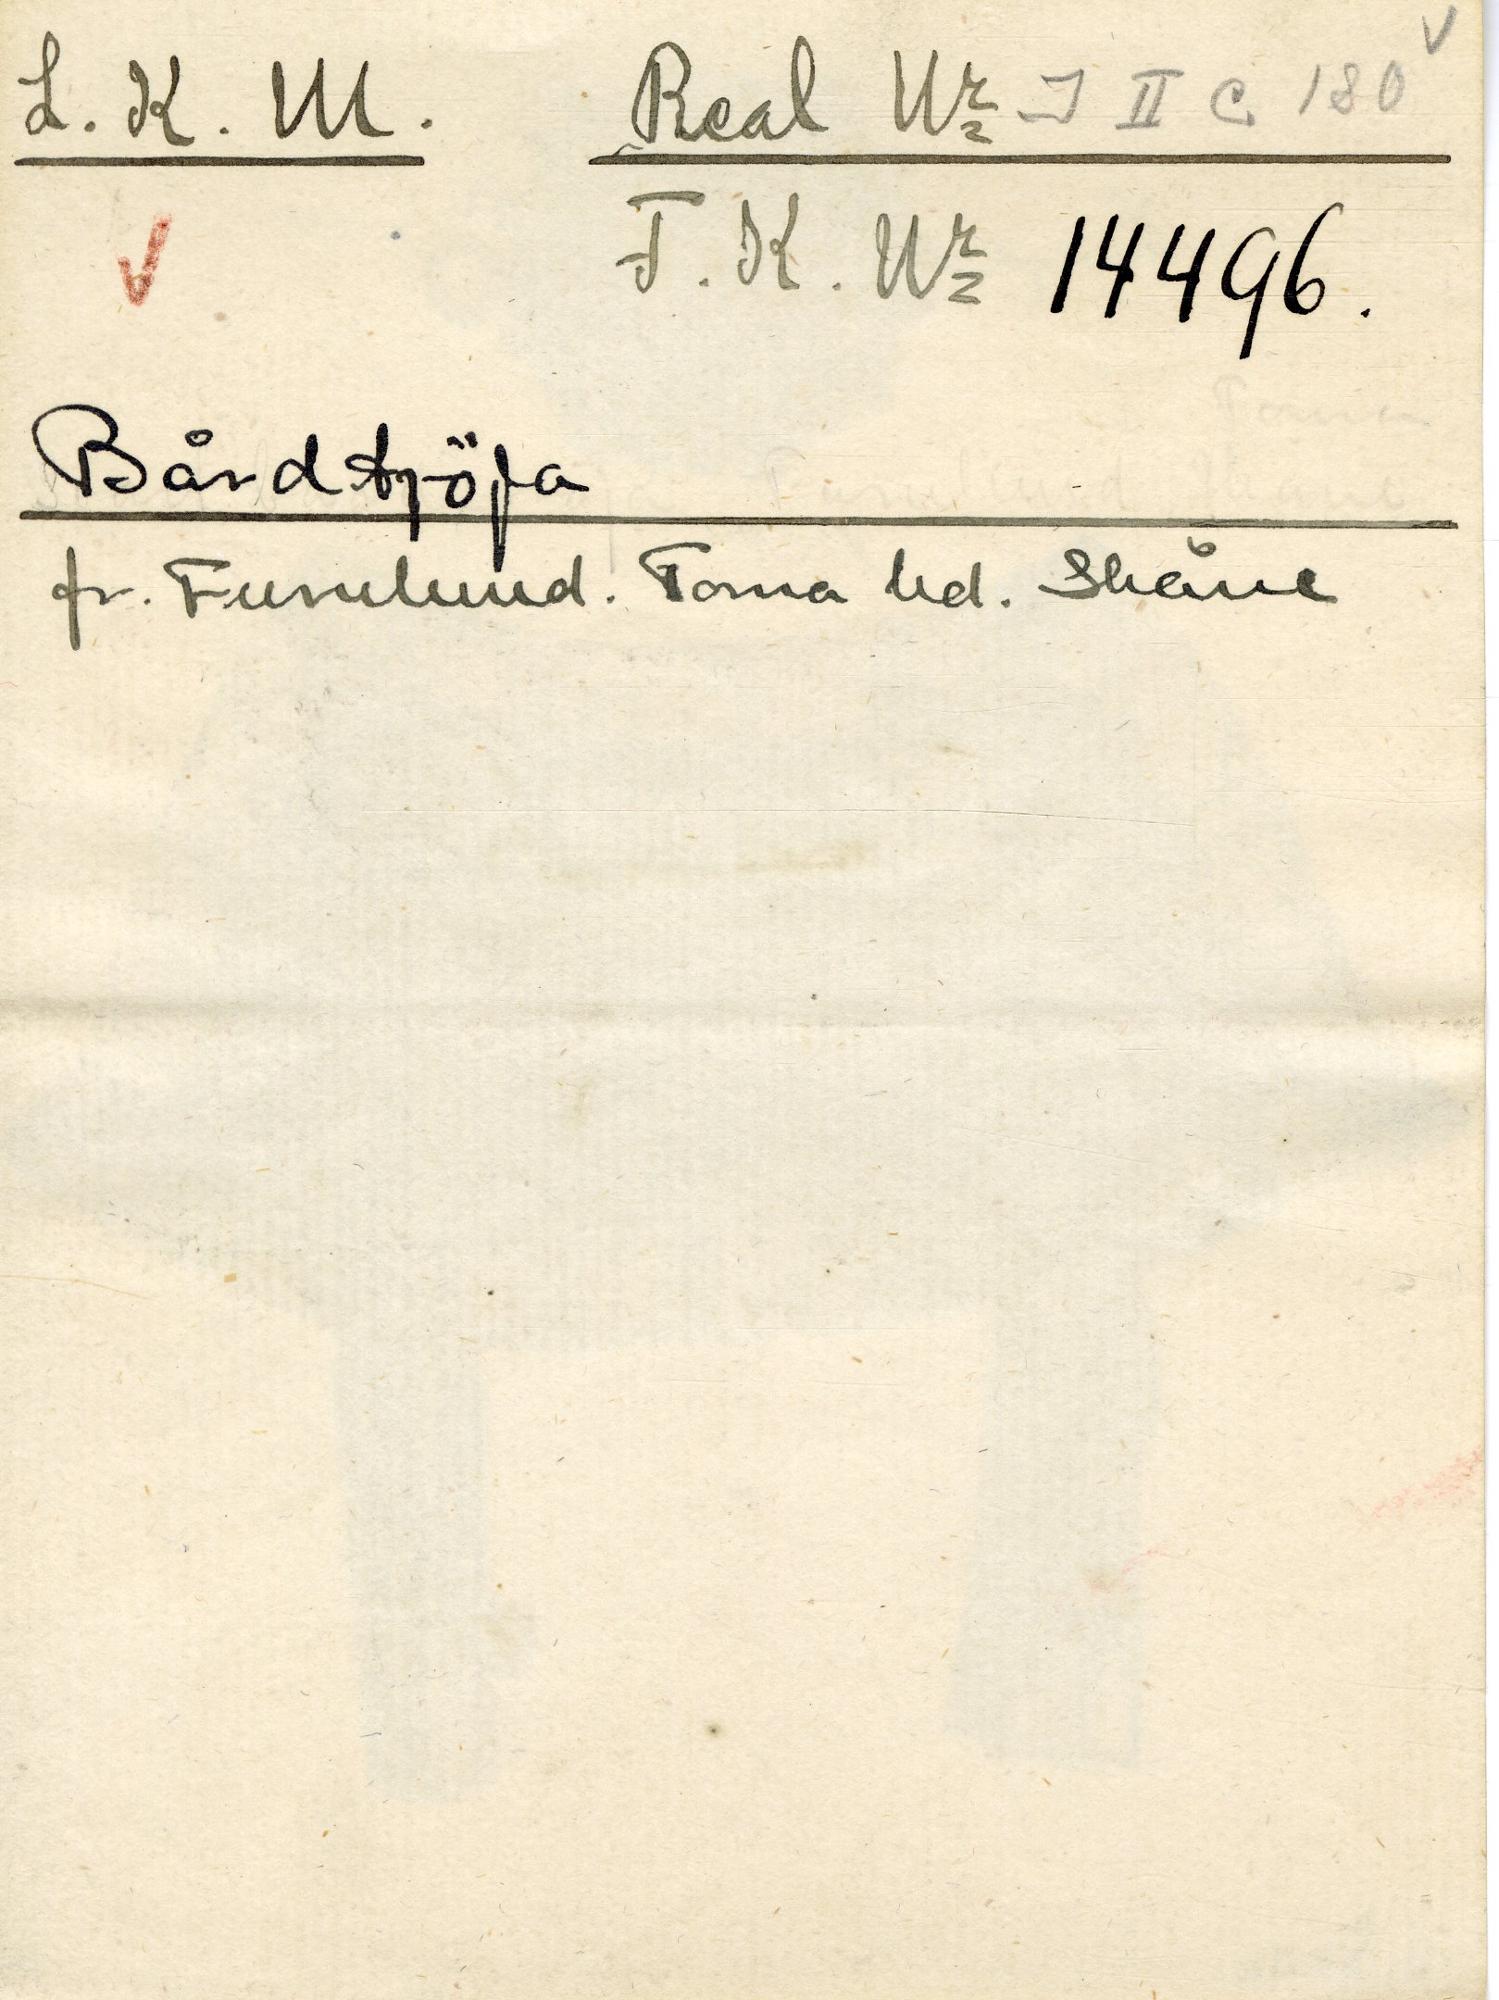 L. K. M. Real Nr I II C 180
T. K. Nr 14496.
Bårdtröja
fr. Furulund. Torna hd. Skåne